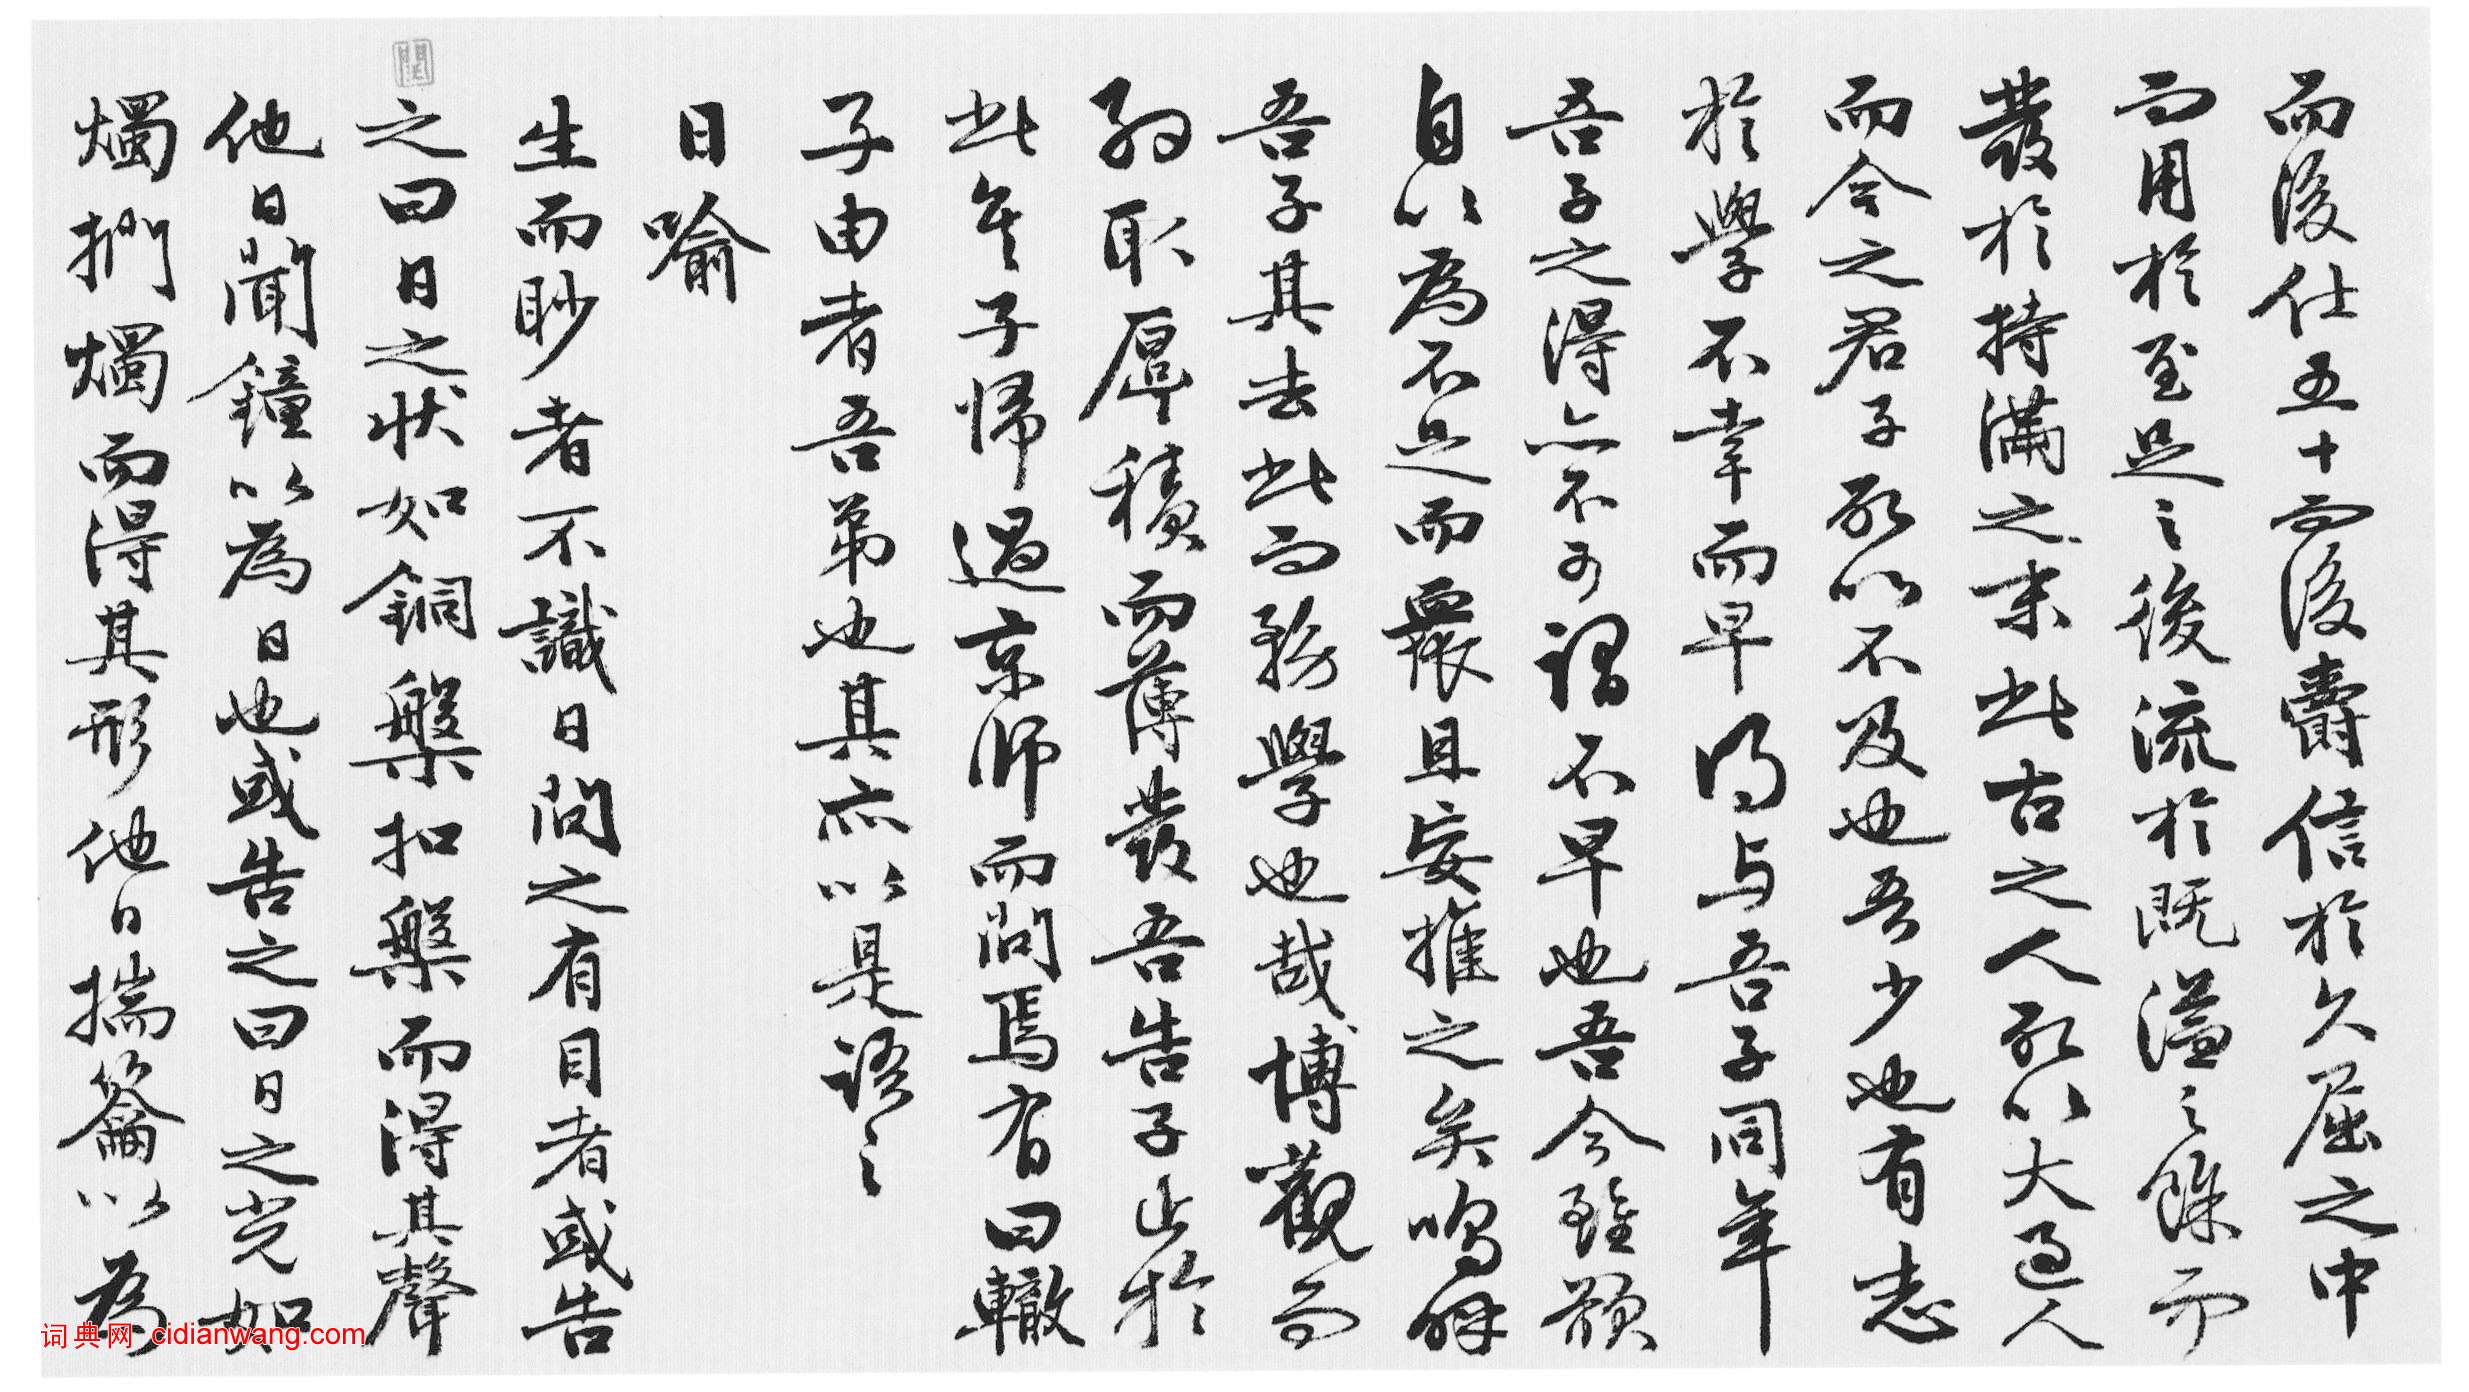 而後仕五十而後爵信於久屈之中
而用於至足之後流於既溢之餘而
發於持滿之末此古之人所以大過人
而今之君子所以不及也吾少也有志
於學不幸而早得与吾子同年
吾子之得亦不可謂不早也吾今雖欲
自以為不足而眾且妄推之矣嗚呼
吾子其去此而務學也哉博觀而
約取厚積而薄發吾告子止於
此矣子歸過京師而問焉有曰轍
子由者吾弟也其亦以是語之
日喻
生而眇者不識日問之有目者或告
之曰日之狀如銅槃扣槃而得其聲
他日聞鐘以為日也或告之曰日之光如
燭捫燭而得其形他日揣籥以為
词典网 cidianwang.com